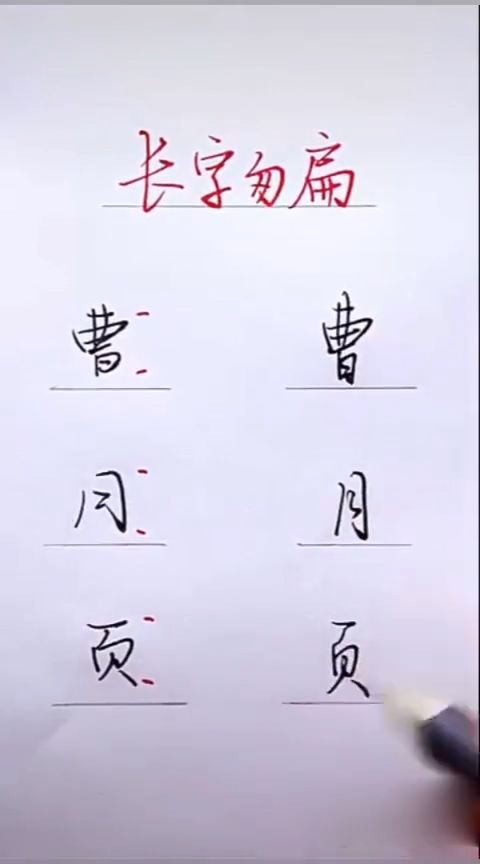 长字勿扁
曹 曹
月 月
页 页